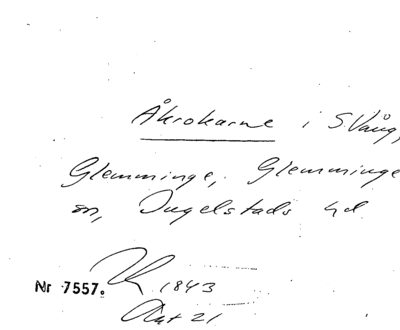 Åkrokarne i S. Vång,
Glemminge, Glemminge
sn, Ingelstads hd
Nr 7557. 1843
21